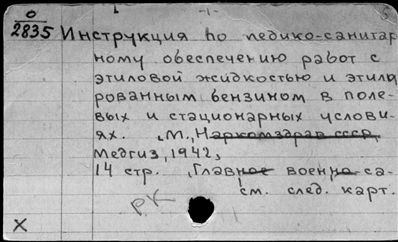 О
2835
Инструкция по педико-санитар
ному обеспечению работ с
этиловой жидкостью и этили
рованным бензином в поле-
вых и стационарных услови-
ях. М., Наркомздрав ссср,
Медгиз, 1942,
14 стр. Главное военно са-
см. след. карт.
рк
X